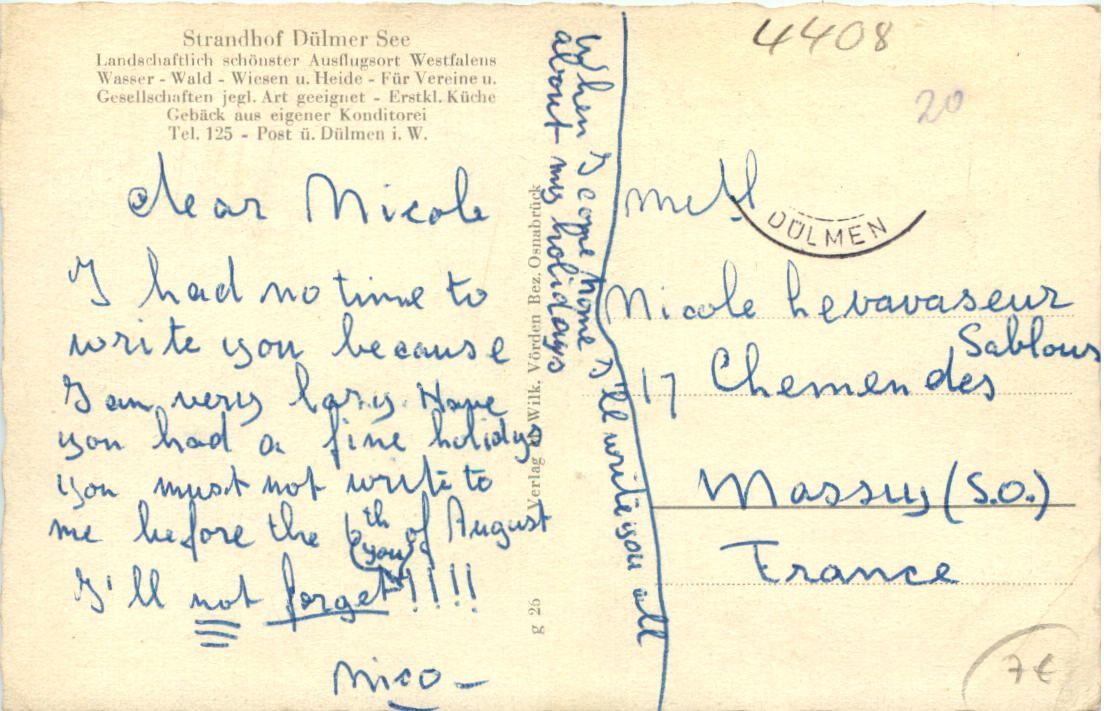 Strandhof Dülmer See
Landschaftlich schönster Ausflugsort Westfalens
Wasser - Wald - Wiesen u. Heide - Für Vereine u.
Gesellschaften jegl. Art geeignet - Erstkl. Küche
Gebäck aus eigener Konditorei
Tel. 125 - Post ü. Dülmen i. W.
dear Nicole
I had no time to
write you because
I am very lazy. Have
you had a fine holidys
you must not write to
me before the 6th of August
I'll not forget (you) !!!!
Nico
When I come home I'll write you all
about my holidays
Verlag Wilk. Vörden Bez. Osnabrück
g 26
4408
20
DÜLMEN
Melle
Nicole Levavaseur
17 Chemen des Sablons
Massy (S.O.)
France
7€